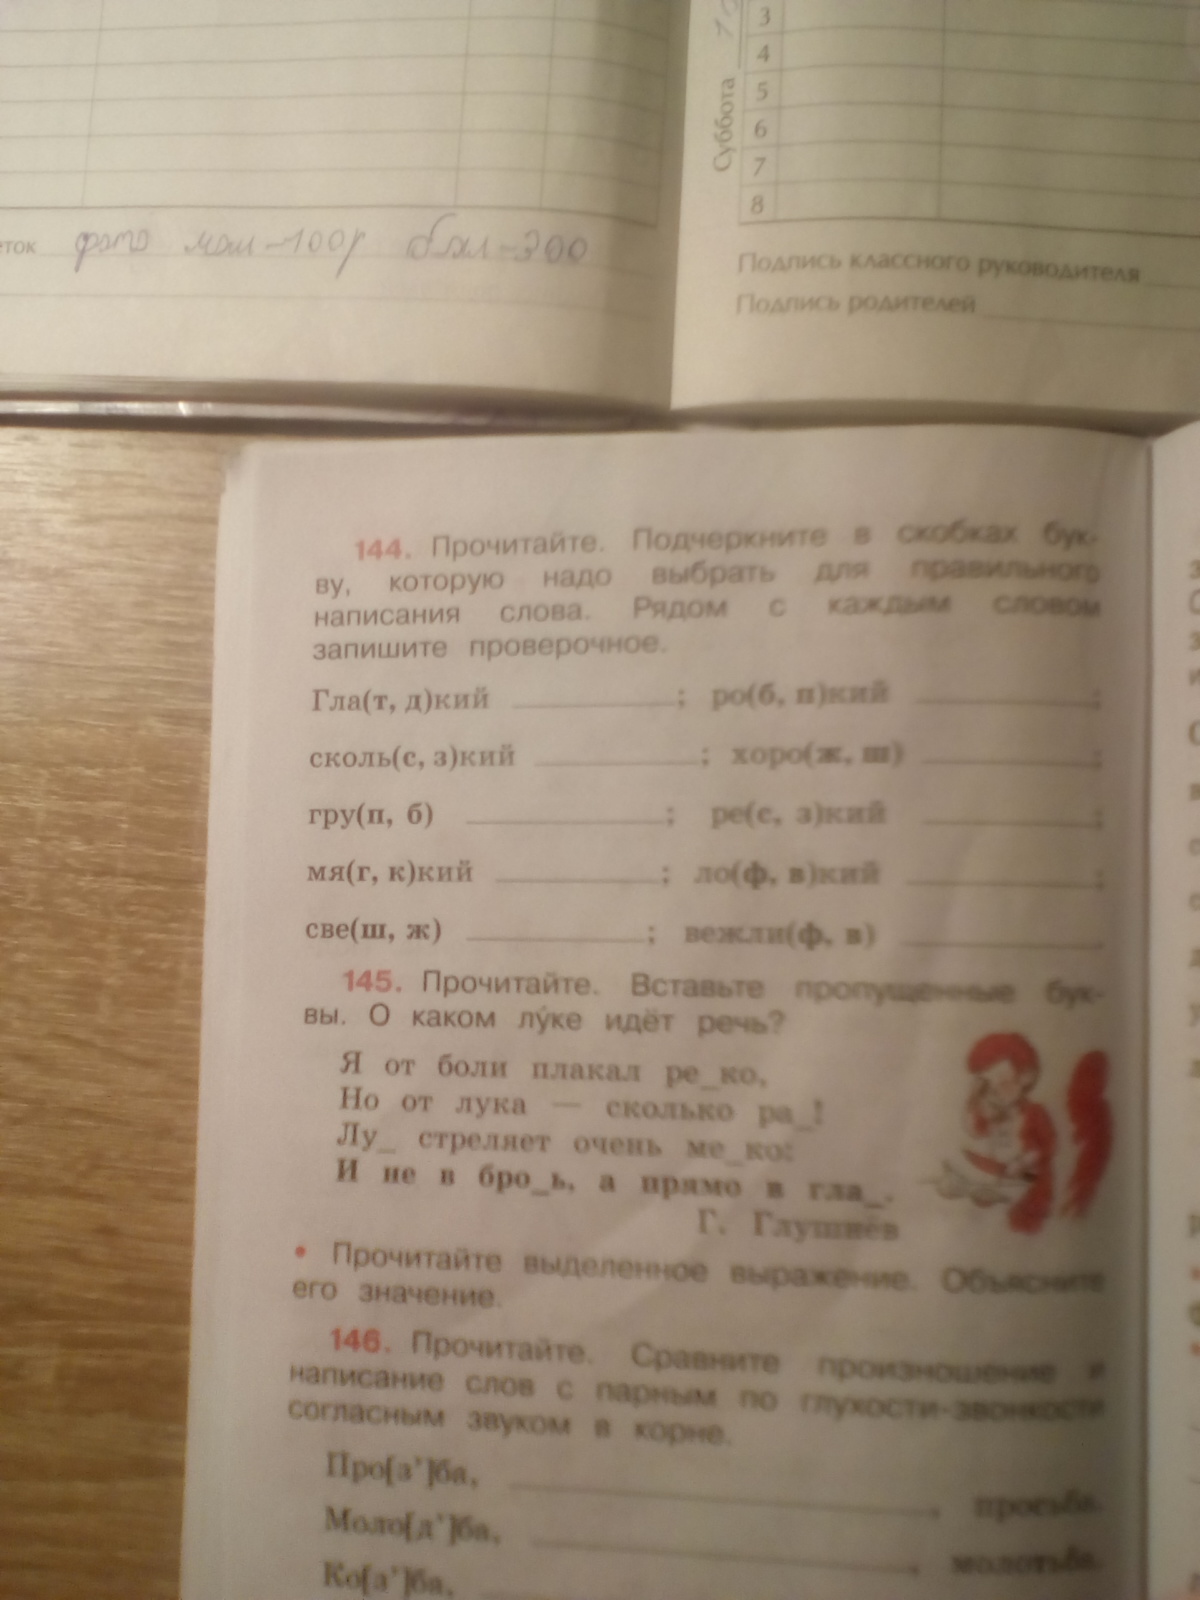 3
4
5
6
7
8
Суббота
еток фото мал-100р бол-300
Подпись классного руководителя
Подпись родителей
144. Прочитайте. Подчеркните в скобках бук-
ву, которую надо выбрать для правильного
написания слова. Рядом с каждым словом
запишите проверочное.
Гла(т, д)кий ____ ; ро(б, п)кий ____ ;
сколь(с, з)кий ____ ; хоро(ж, ш) ____ ;
гру(п, б) ____ ; ре(с, з)кий ____ ;
мя(г, к)кий ____ ; ло(ф, в)кий ____ ;
све(ш, ж) ____ ; вежли(ф, в) ____ .
145. Прочитайте. Вставьте пропущенные бук-
вы. О каком лу́ке идёт речь?
Я от боли плакал ре_ко,
Но от лука — сколько ра_!
Лу_ стреляет очень ме_ко:
И не в бро_ь, а прямо в гла_.
Г. Глушнёв
• Прочитайте выделенное выражение. Объясните
его значение.
146. Прочитайте. Сравните произношение и
написание слов с парным по глухости-звонкости
согласным звуком в корне.
Про[з']ба, ____, просьба.
Моло[д']ба, ____, молотьба.
Ко[з']ба,